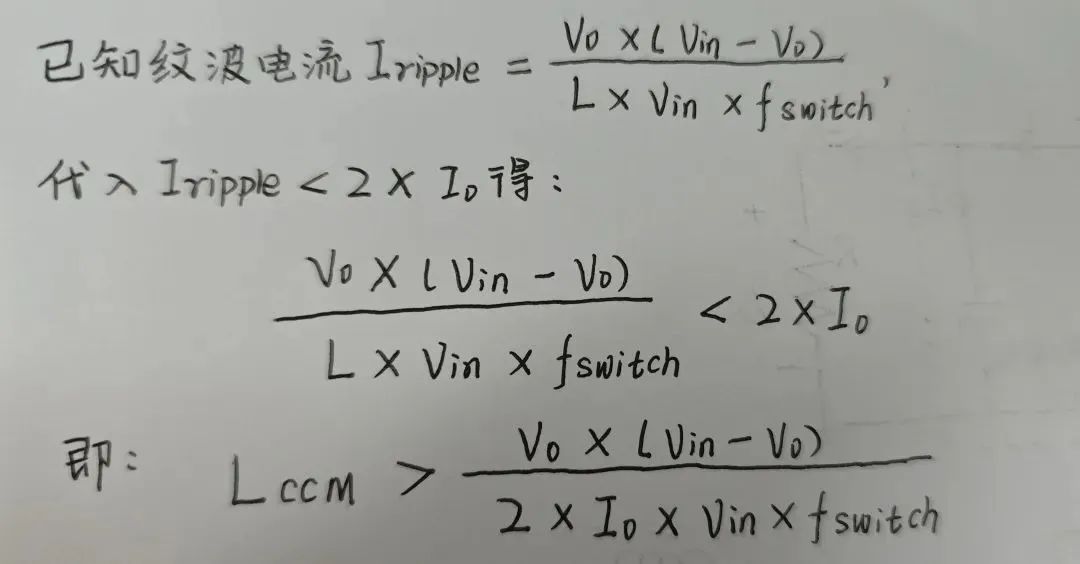 已知纹波电流 Iripple = Vo × (Vin - Vo) / L × Vin × fswitch,
代入 Iripple < 2 × Io 得:
Vo × (Vin - Vo) / L × Vin × fswitch < 2 × Io
即: LCCM > Vo × (Vin - Vo) / 2 × Io × Vin × fswitch